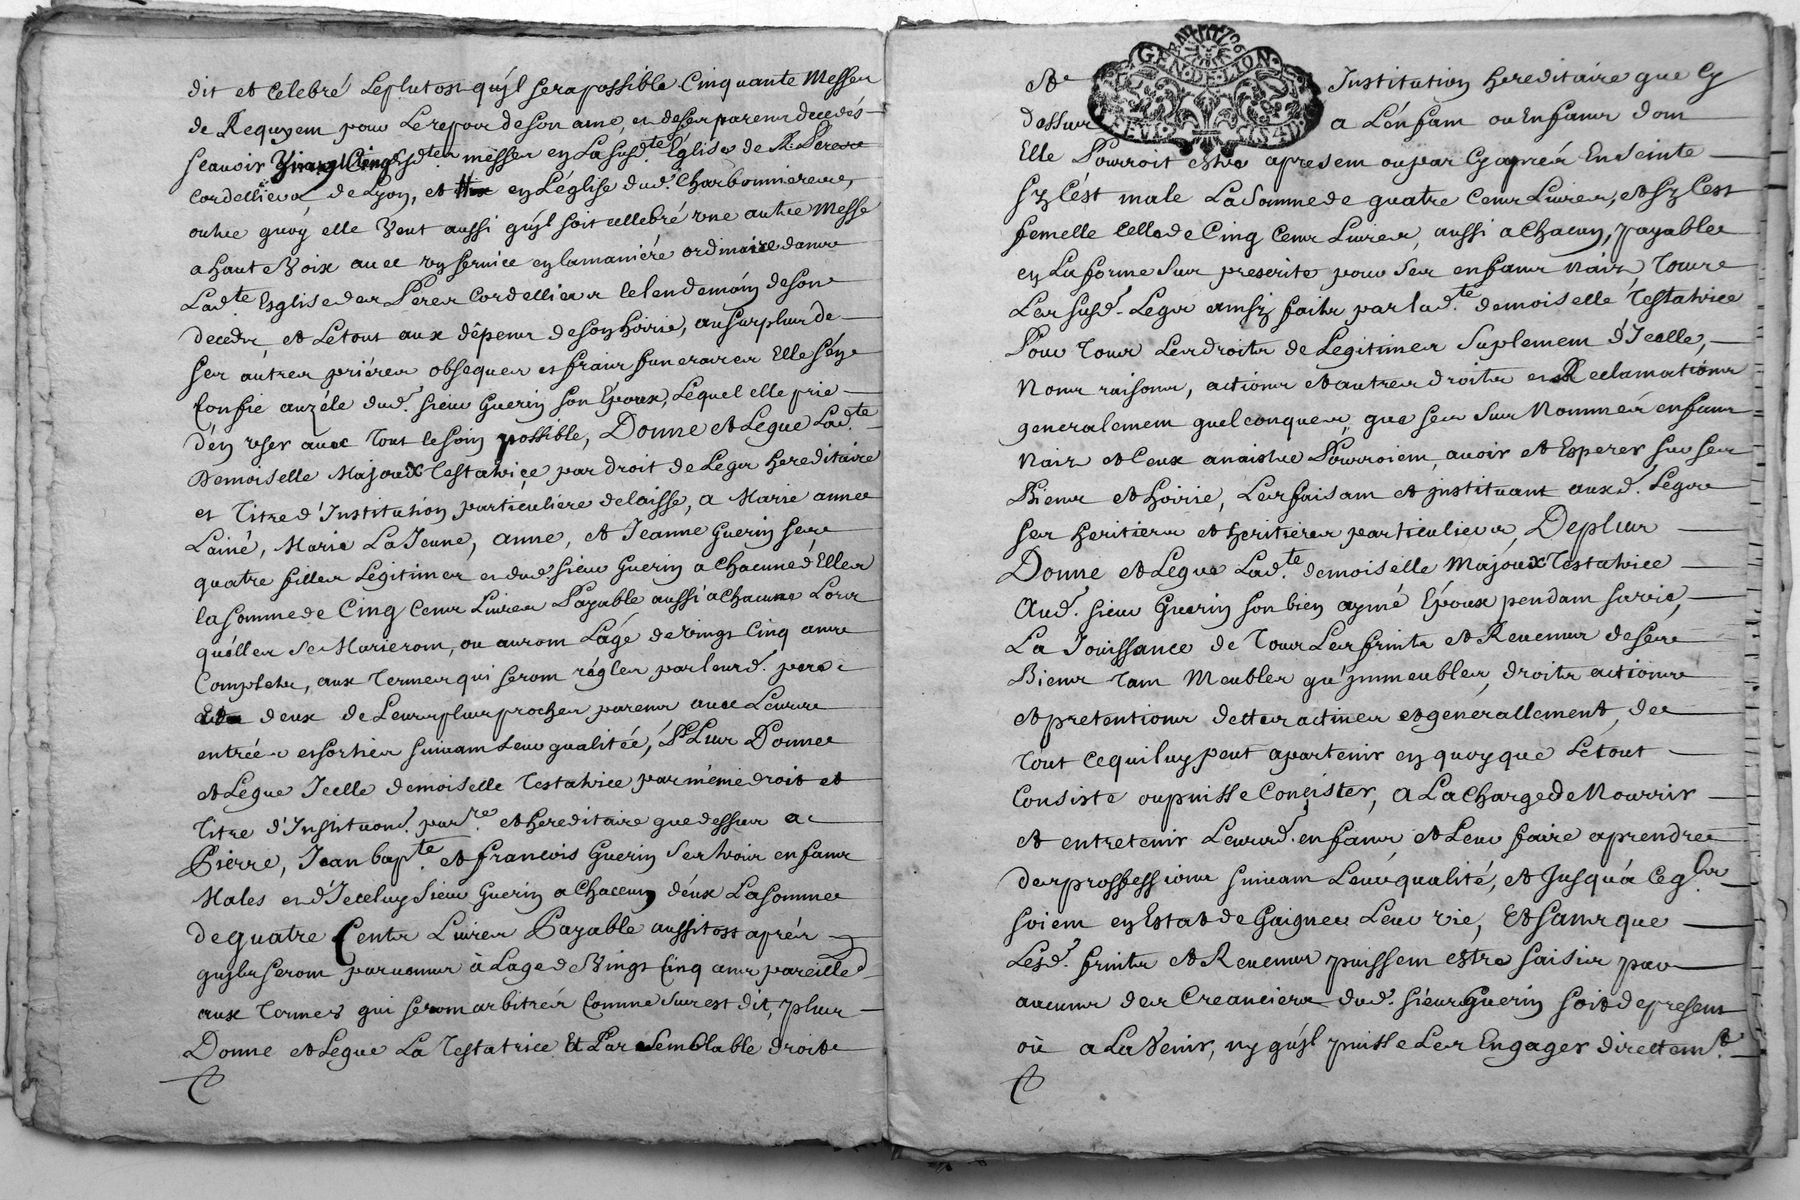 dit et celebré leplutost quyl serapossible Cinquante Messes
de Requyem pour Lerepos deson ame, et deses parens decedés
scauoir Vingt Cinq desd.tes messes en La susd.te Église des R. Peres
Cordelliers de Lyon, et en L'église dud. Charbonnieres,
outre quoy elle Veut aussi quyl soit cellebré vne autre Messe
a haute Voix auec vn seruice en lamaniére ordinaire dans
Lad.te Esglise des Peres Cordelliers lelendemain deson
decedz, et Letout aux dépens deson hoirie, au surplus de
ses autres priéres obseques et frais funeraires Elle s'en
Confie auzéle dud. sieur Guerin son Epoux, Lequel elle prie
d'en vser auec Tout lesoin possible, Donne et Legue Lad.te
Demoiselle Majoux Testatrice par droit de Legs hereditaire
et Titre d'Institution particuliere delaisse, a Marie anne
Lainé, Marie La Jeune, anne, et Jeanne Guerin ses
quatre filles Legitimes et dud. sieur Guerin a Chacune d'Elles
la somme de Cinq Cens Liures Payable aussi a Chacune Lors
qu'élles se Marieront, ou auront L'áge de vingt Cinq ans
Complets, aux Termes qui seront réglés par leurd. pere
deux de Leurs plus proches parens auec Leurs
entrées et sorties suiuant Leur qualitée, Plus Donne
et Légue Icelle demoiselle Testatrice par méme droit et
Titre d'Instituon. par.re et hereditaire que dessus a
Pierre, Jean bap.te et francois Guerin ses trois enfans
Males et d'Iceluy sieur Guerin a Chacun d'éux La somme
de quatre Cents Liures Payable aussitost aprés
quyls seront paruenus à Lage de Vingt Cinq ans pareilled.
aux Termes qui seront arbitrés Comme sus est dit, plus
Donne et Legue La Testatrice Et Par Semblable droit
et
GEN. DE LYON
Institution hereditaire que Cy
dessus a L'enfant ou Enfans dont
Elle Pourroit estre apresent ou par Cy aprés Enseinte
sy C'ést male La Somme de quatre Cens Liures, et sy C'est
femelle Celle de Cinq Cens Liures, aussi a Chacun, payables
en La forme sus prescrite pour ses enfans naiz Tous
Les susd. Legs ainsy faits par lad.te demoiselle Testatrice
Pour Tous Les droits de Legitimes Suplement d'Icelle,
Noms raisons, actions et autres droits et Reclamations
generalement quelconques, que ses sus Nommés enfans
Naiz et Ceux a naistre Pourroient, auoir et Esperer sur ses
Biens et hoirie, Les faisant et jnstituant auxd. Legs
ses heritiers et heritieres particuliers, Deplus
Donne et Legue Lad.te demoiselle Májoux Testatrice
Aud. sieur Guerin son bien aymé Epoux pendant sa vie,
La Jouissance de Tous Les fruits et Reuenus de ses
Biens Tant Meubles qu'jmmeubles, droits actions
et pretentions dettes actiues et générallement, de
Tout Cequi luy peut apartenir en quoy que Le tout
Consiste ou puisse Concister, a La Charge de Nourrir
et entretenir Leursd. enfans et Leur faire aprendre
des professions suiuant Leur qualité, et Jusquà Ceq.ls
soient en Estat de Gaigner Leur vie, Et sans que
Lesd. fruits et Reuenus puissent estre saisis par
aucuns des Creanciers dud. sieur Guerin soit de present
où a La Venir, ny qu'yl puisse Les Engager directem.t